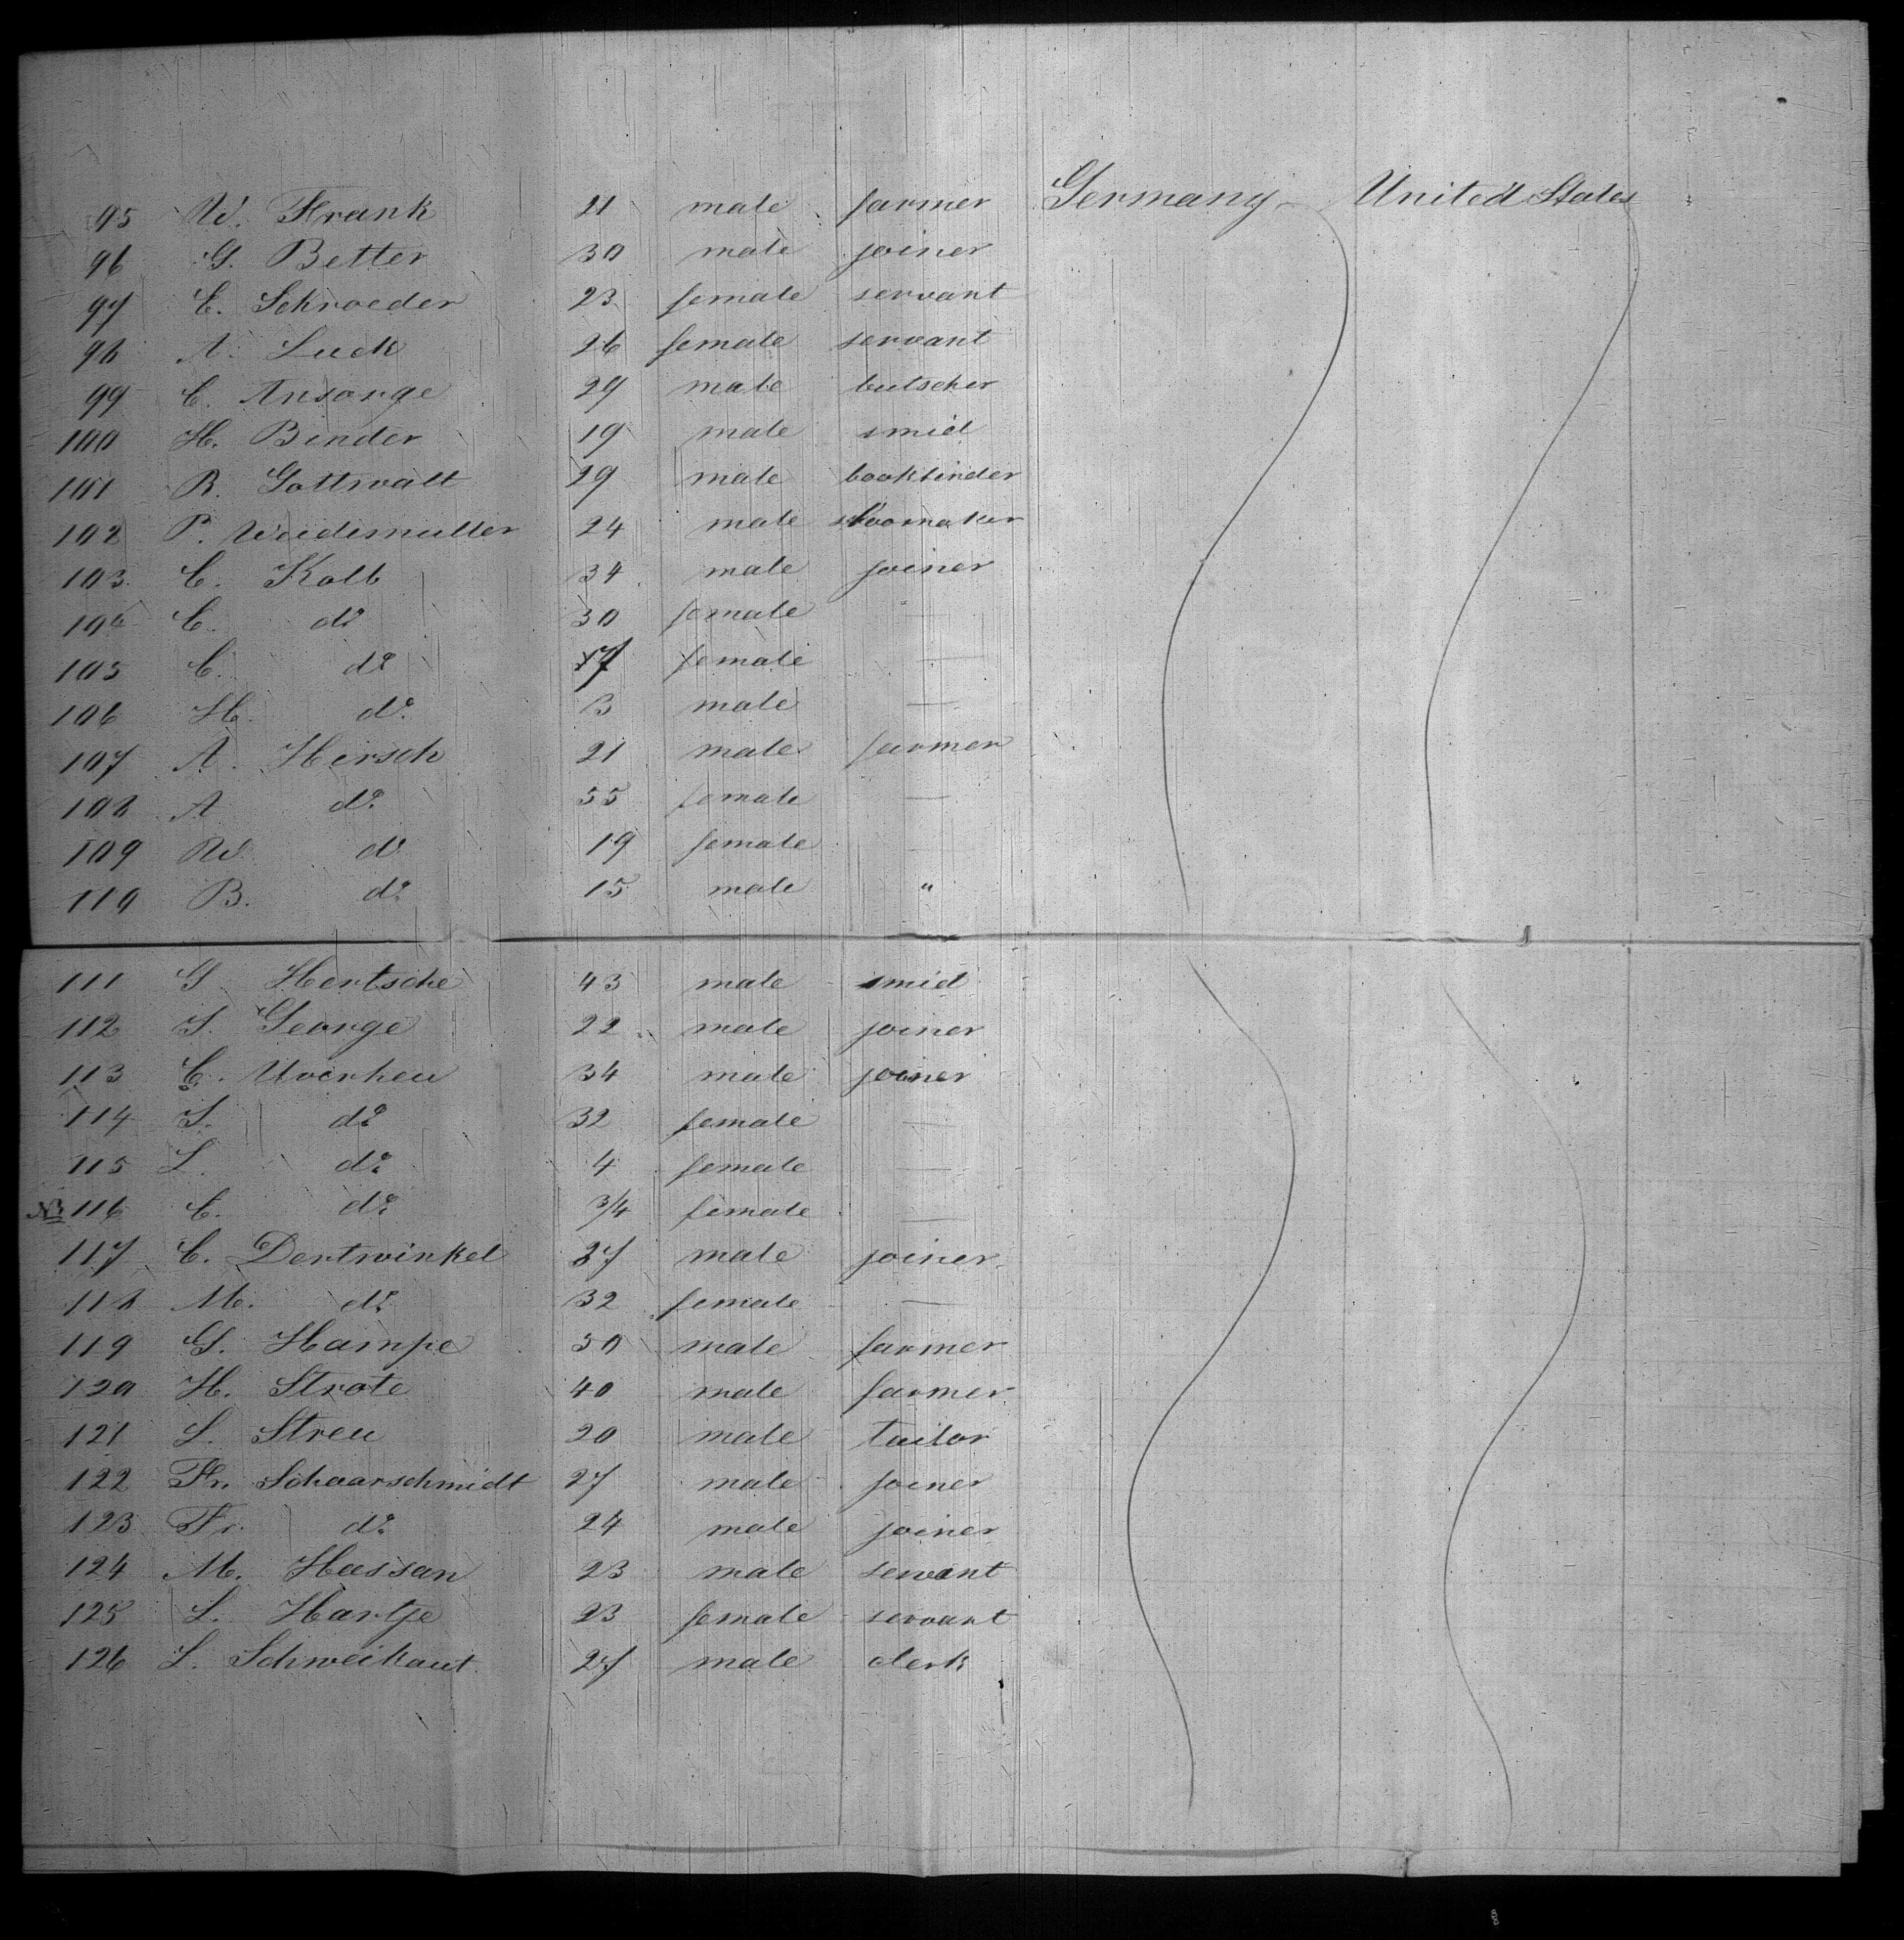 95 W. Frank 21 male farmer Germany United States
96 G. Better 30 male joiner
97 E. Schroeder 23 female servant
98 A. Luck 26 female servant
99 C. Ansorge 29 male butscher
100 H. Binder 19 male smid
101 R. Gottwalt 29 male bookbinder
102 P. Weidemuller 24 male shoomaker
103. C. Kolb 34 male joiner
104 C. do 30 female —
105 C. do 7 female —
106 H. do 3 male —
107 A. Hirsch 21 male farmer
108 A do 55 female —
109 W. do 19 female —
110 B. do 15 male "
111 G Hertsche 43 male smid
112 S. George 22 male joiner
113 C. 34 male joiner
114 S. do 32 female —
115 L. do 4 female —
116 C. do 3/4 female —
117 C. Dertwinkel 37 male joiner
118 M. do 32 female —
119 G. Hampe 50 male farmer
120 H. Strote 40 male farmer
121 L. Streu 20 male tailor
122 Fr. Schaarschmidt 27 male joiner
123 Fr. do 24 male joiner
124 M. Hassan 23 male servant
125 L. Hartje 23 female servant
126 L. Schweikaut 27 male clerk